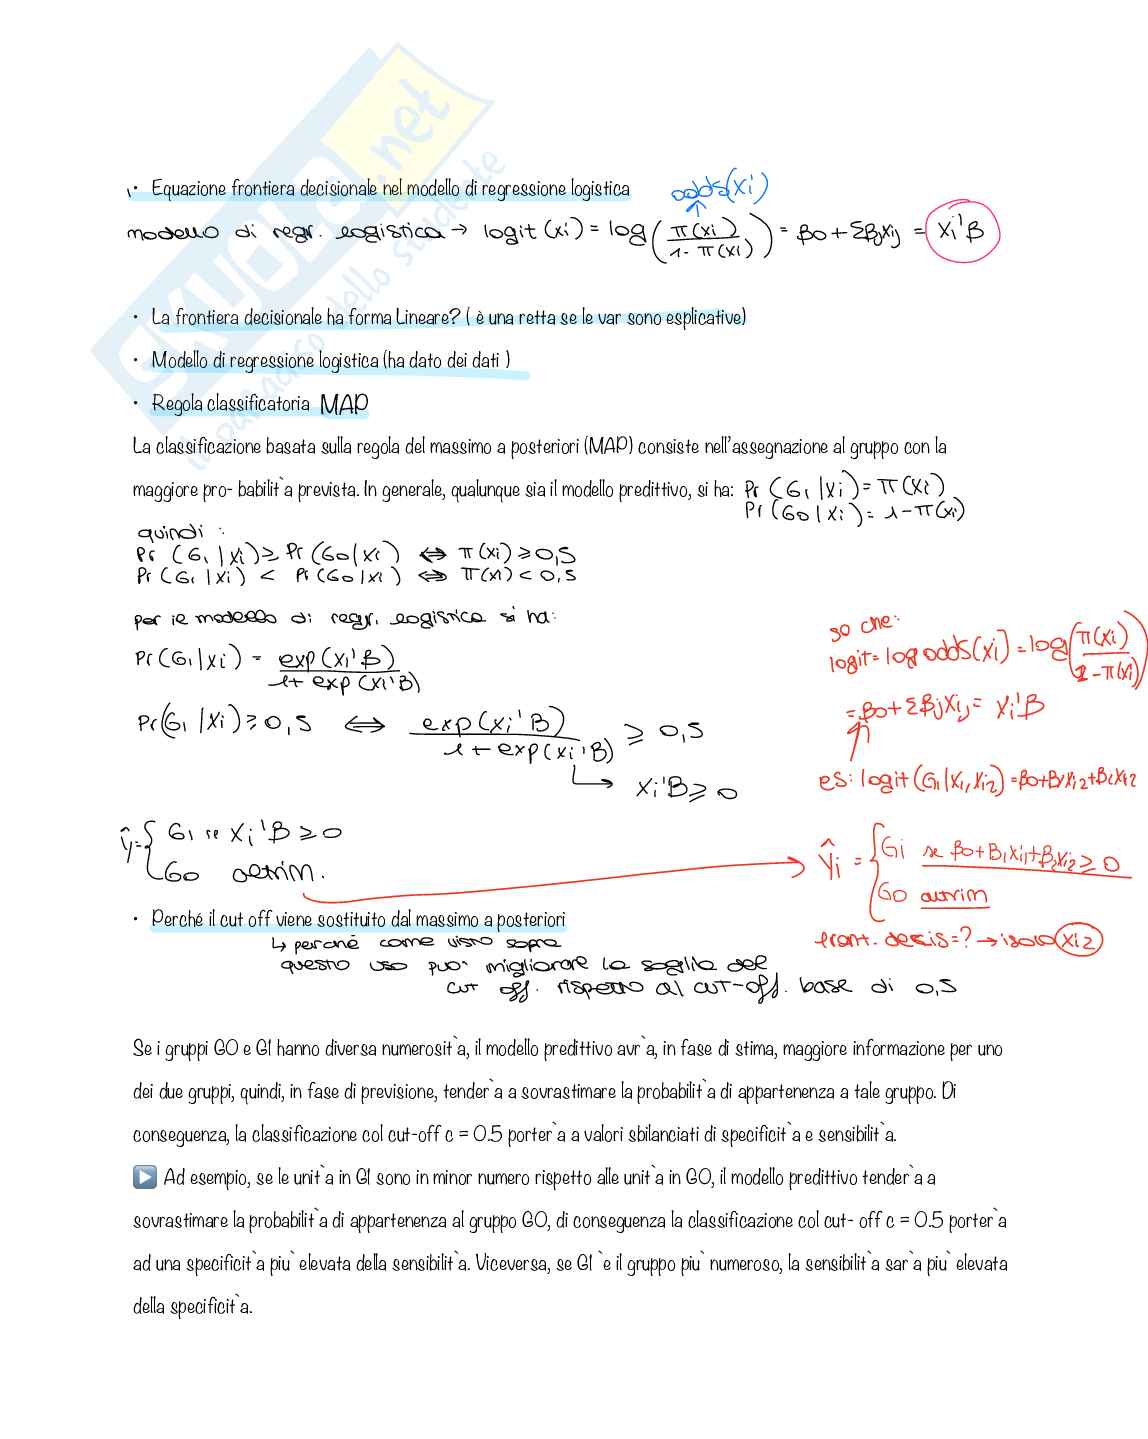 SKUOLA.net
il paradiso dello studente
• Equazione frontiera decisionale nel modello di regressione logistica
odds(xi)
modello di regr. logistica → logit (xi) = log(π(xi)/1-π(xi)) = β0 + Σβjxij = xi'β
• La frontiera decisionale ha forma Lineare? ( è una retta se le var sono esplicative)
• Modello di regressione logistica (ha dato dei dati )
• Regola classificatoria MAP
La classificazione basata sulla regola del massimo a posteriori (MAP) consiste nell'assegnazione al gruppo con la
maggiore pro- babilit`a prevista. In generale, qualunque sia il modello predittivo, si ha: Pr (G1 |xi) = π(xi)
Pr (G0 | xi) = 1-π(xi)
quindi :
Pr (G1 | xi) ≥ Pr (G0 | xi) ⇔ π(xi) ≥ 0,5
Pr (G1 | xi) < Pr (G0 | xi) ⇔ π(xi) < 0,5
per il modello di regr. logistica si ha:
Pr (G1 | xi) = exp(xi'β)/1+ exp(xi'β)
Pr(G1 | xi) ≥ 0,5 ⇔ exp(xi'β)/1+exp(xi'β) ≥ 0,5
↳ xi'β ≥ 0
ŷ= { G1 se xi'β ≥ 0
G0 altrim.
so che:
logit = log odds(xi) = log(π(xi)/1-π(xi))
= β0 + Σβjxij = xi'β
es: logit (G1|xi1,xi2) = β0+β1xi2+β2xi2
ŷi = { Gi se β0+β1xi1+β2xi2 ≥ 0
G0 altrim
front. decis=? → isolo xi2
• Perché il cut off viene sostituito dal massimo a posteriori
↳ perché come visto sopra
questo uso puo' migliorare la soglia del
cut off. rispetto al cut-off. base di 0,5
Se i gruppi G0 e G1 hanno diversa numerosit`a, il modello predittivo avr`a, in fase di stima, maggiore informazione per uno
dei due gruppi, quindi, in fase di previsione, tender`a a sovrastimare la probabilit`a di appartenenza a tale gruppo. Di
conseguenza, la classificazione col cut-off c = 0.5 porter`a a valori sbilanciati di specificit`a e sensibilit`a.
▶ Ad esempio, se le unit`a in G1 sono in minor numero rispetto alle unit`a in G0, il modello predittivo tender`a a
sovrastimare la probabilit`a di appartenenza al gruppo G0, di conseguenza la classificazione col cut- off c = 0.5 porter`a
ad una specificit`a piu` elevata della sensibilit`a. Viceversa, se G1 `e il gruppo piu` numeroso, la sensibilit`a sar`a piu` elevata
della specificit`a.